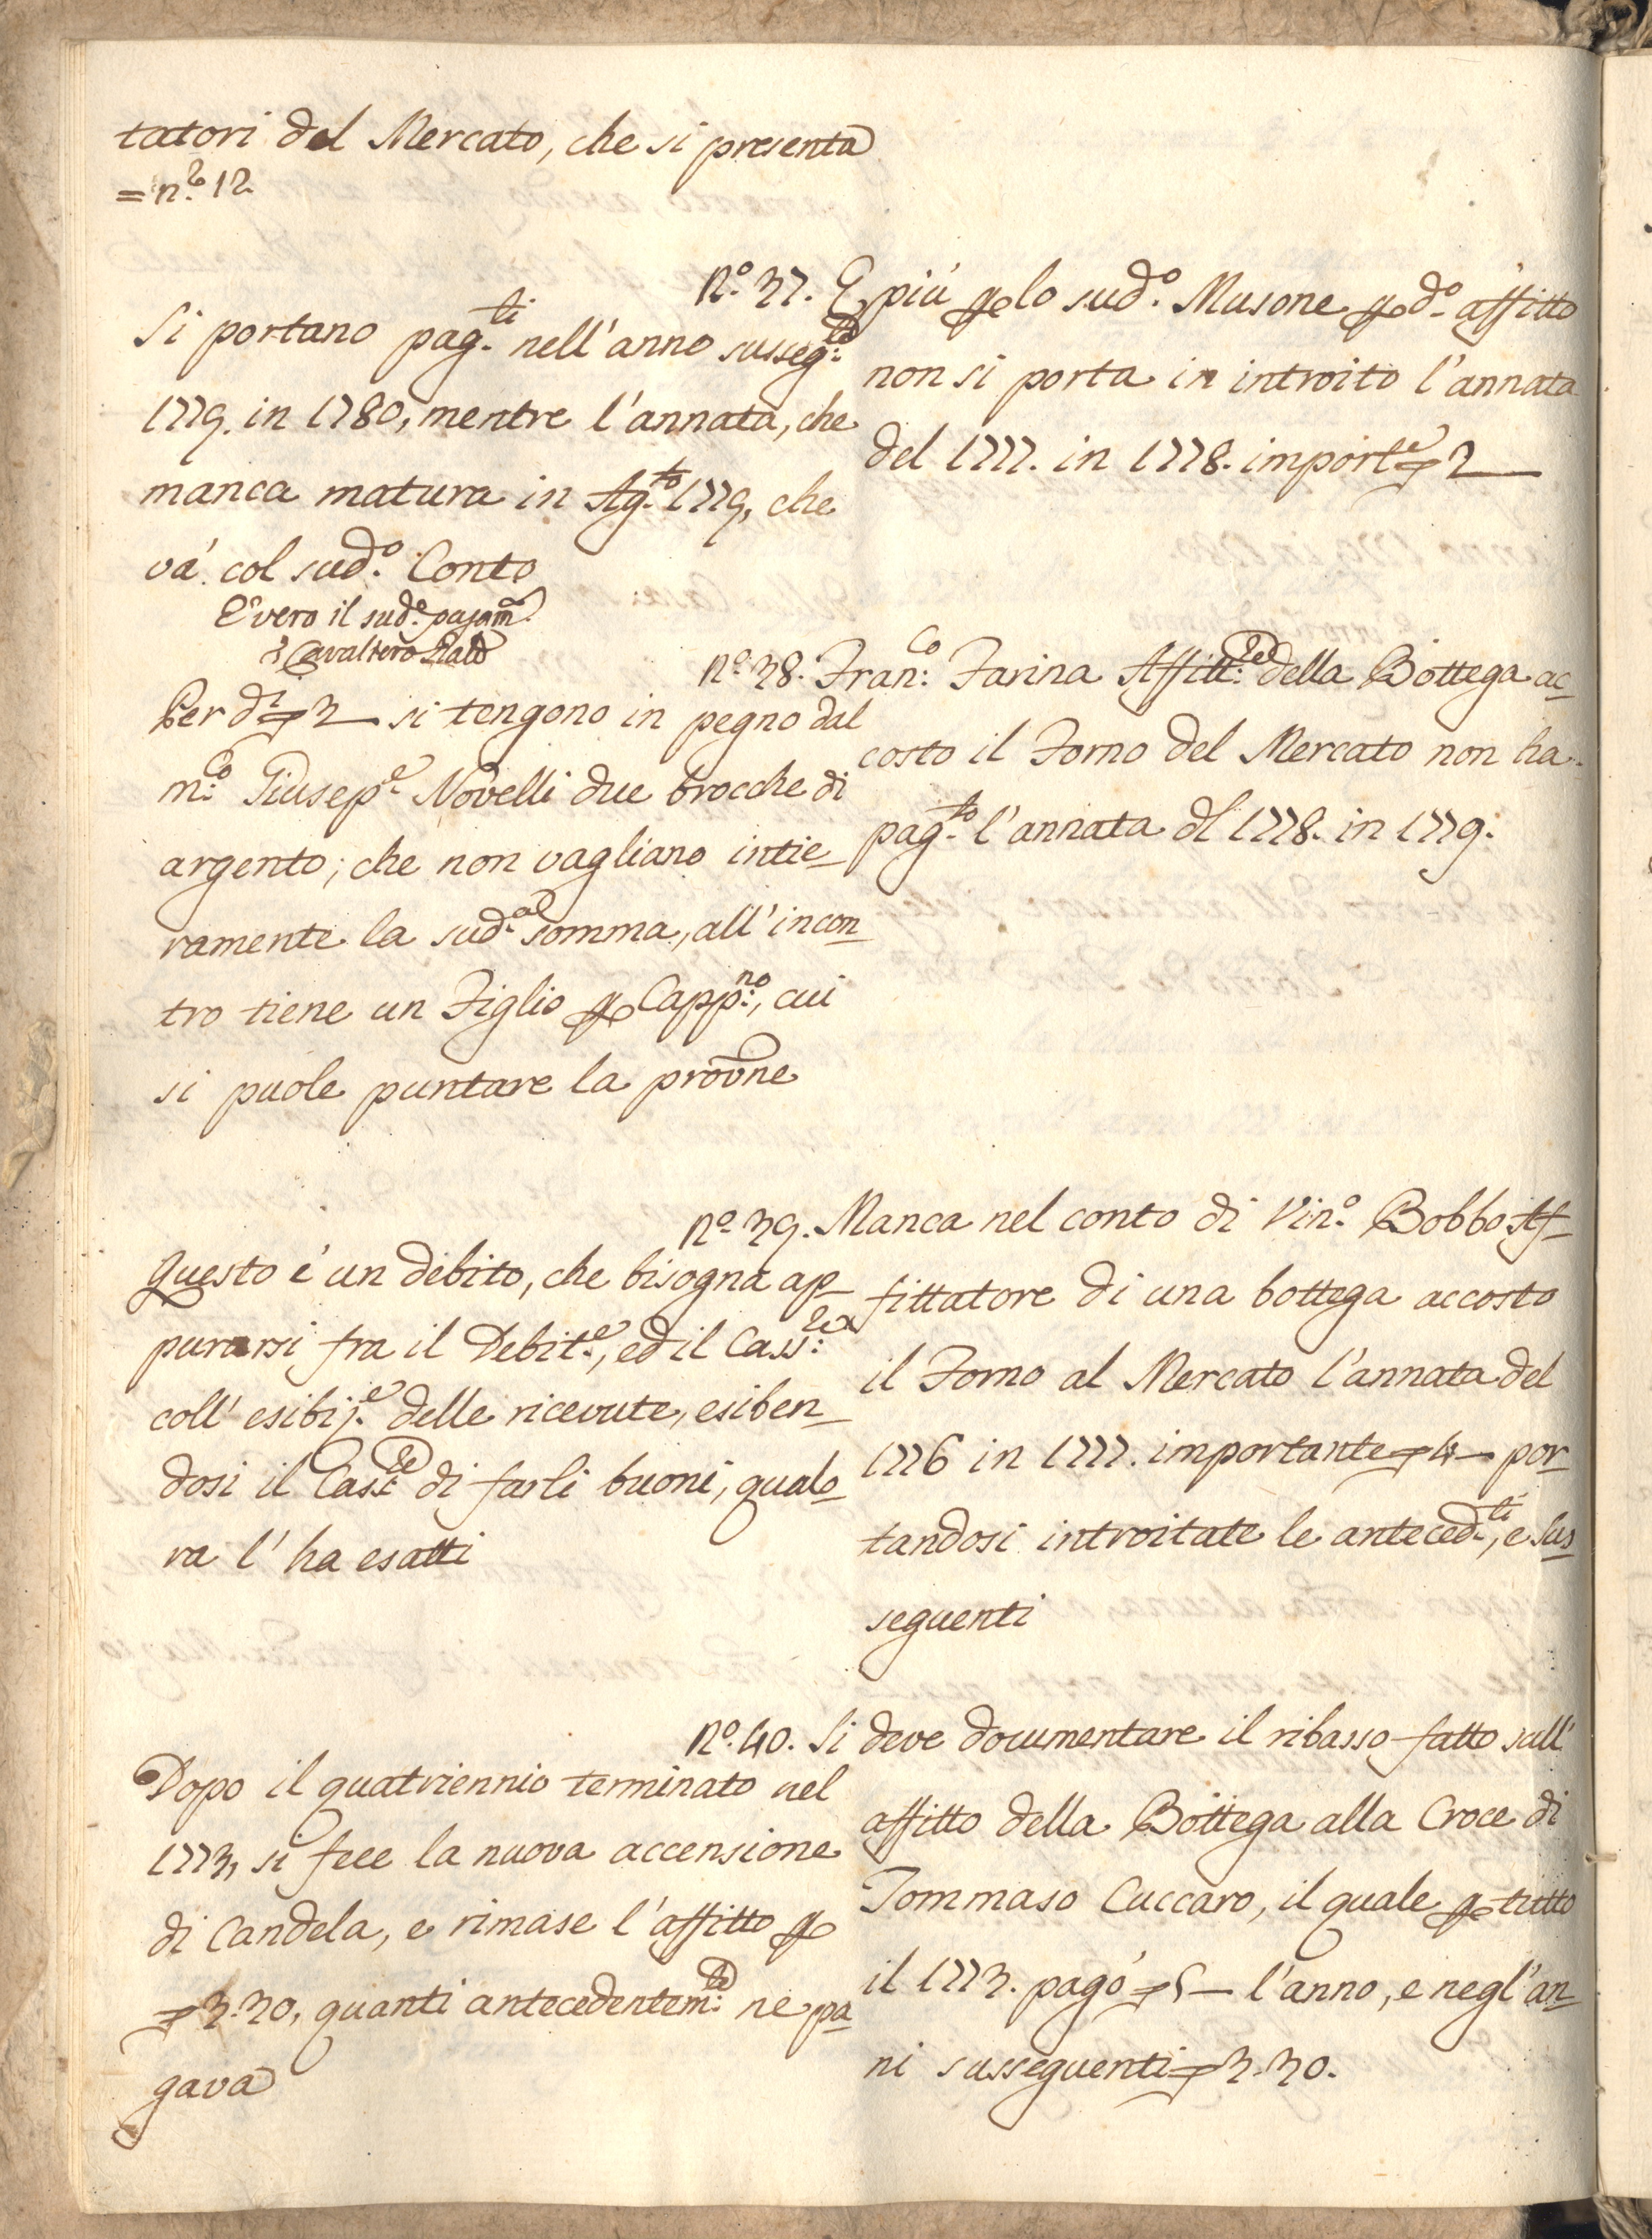 tatori del Mercato, che si presenta
= n.º 12
Nº. 37. E più p lo sud.º Musone p d.º affitto
non si porta in introito l'annata
del 1777. in 1778. import.e 3—
Si portano pag.ti nell'anno susseg.te
1779. in 1780, mentre l'annata, che
manca matura in Ag.to 1779, che
và col sud.º Conto
E' vero il sud.º pagam.to
Cavaliero
Nº. 38. Fran.co Farina Affitt.re della Bottega ac-
costo il Forno del Mercato non ha
pag.to l'annata dl 1778. in 1779.
Per d.i 3— si tengono in pegno dal
m.co Giusep.e Novelli due brocche di
argento; che non vagliano intie-
ramente la sud.a somma, all'incon-
tro tiene un Figlio p Capp.no, cui
si puole puntare la provne
Nº. 39. Manca nel conto di Vin.º Bobbo Af-
fittatore di una bottega accosto
il Forno al Mercato l'annata del
1776 in 1777. importante 4— por-
tandosi introitate le anteced.ti, e sus-
seguenti
Questo è un debito, che bisogna ap-
purarsi fra il Debit.e, ed il Cass.re
coll'esibij.e delle ricevute, esiben-
dosi il Cas.re di farli buoni, qualo-
ra l'ha esatti
Nº. 40. Si deve documentare il ribasso fatto sull'
affitto della Bottega alla Croce di
Tommaso Cuccaro, il quale p tutto
il 1773. pagò 5— l'anno, e negl'an-
ni susseguenti 3.30.
Dopo il quatriennio terminato nel
1773, si fece la nuova accensione
di Candela, e rimase l'affitto p
3.30, quanti antecedentem.te ne pa-
gava